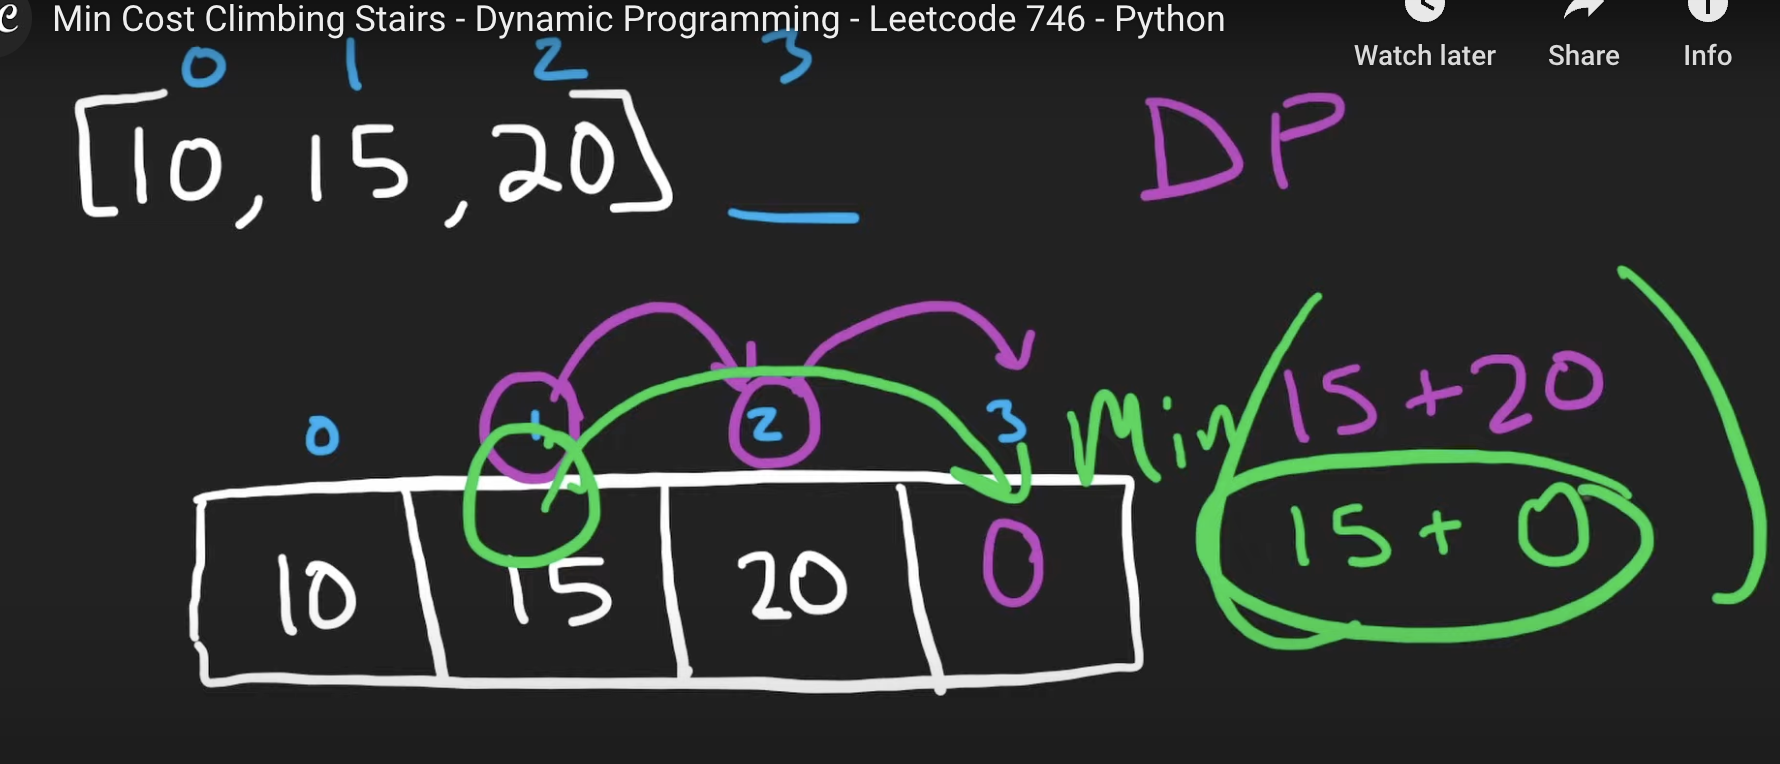 Min Cost Climbing Stairs - Dynamic Programming - Leetcode 746 - Python
Watch later Share Info
0 1 2 3
[10, 15, 20]
DP
0 1 2 3
10 15 20 0
Min(
15+20
15+0
)